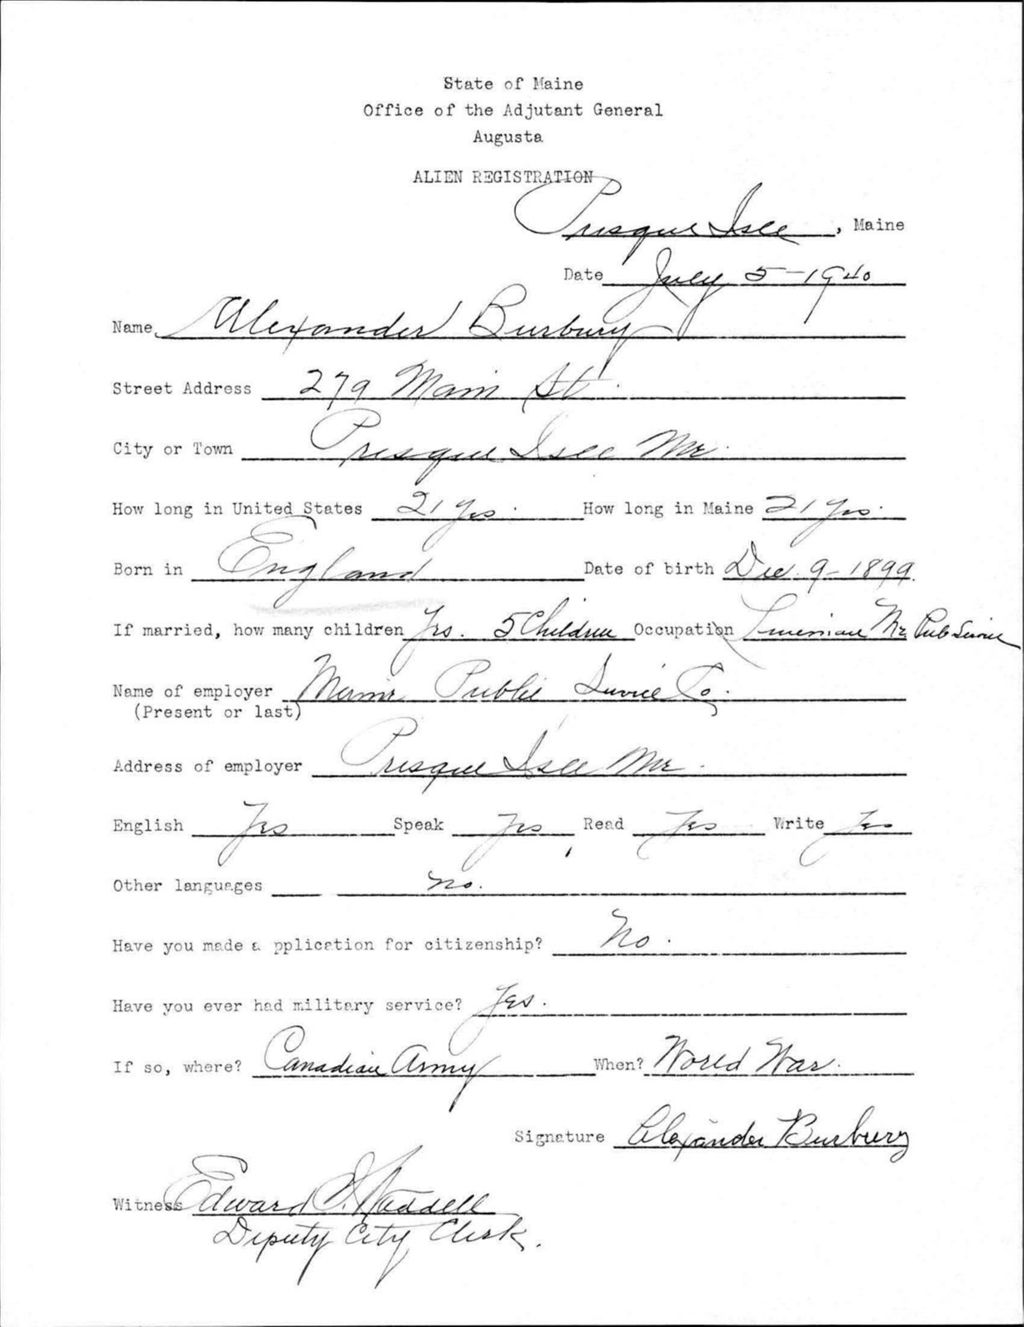 State of Maine
Office of the Adjutant General
Augusta
ALIEN REGISTRATION
Presque Isle, Maine
Date July 5-1940
Name Alexander Burbury
Street Address 279 Main St.
City or Town Presque Isle Me.
How long in United States 21 Yrs. How long in Maine 21 Yrs.
Born in England Date of birth Dec. 9-1899
If married, how many children Yes. 5 Children Occupation Me Pub Service
Name of employer Maine Public Service Co.
(Present or last)
Address of employer Presque Isle Me.
English Yes Speak Yes Read Yes Write Yes
Other languages no.
Have you made a pplication for citizenship? No.
Have you ever had military service? Yes.
If so, where? Canadian Army When? World War.
Signature Alexander Burbury
Witness Edward Waddell
Deputy City Clerk.